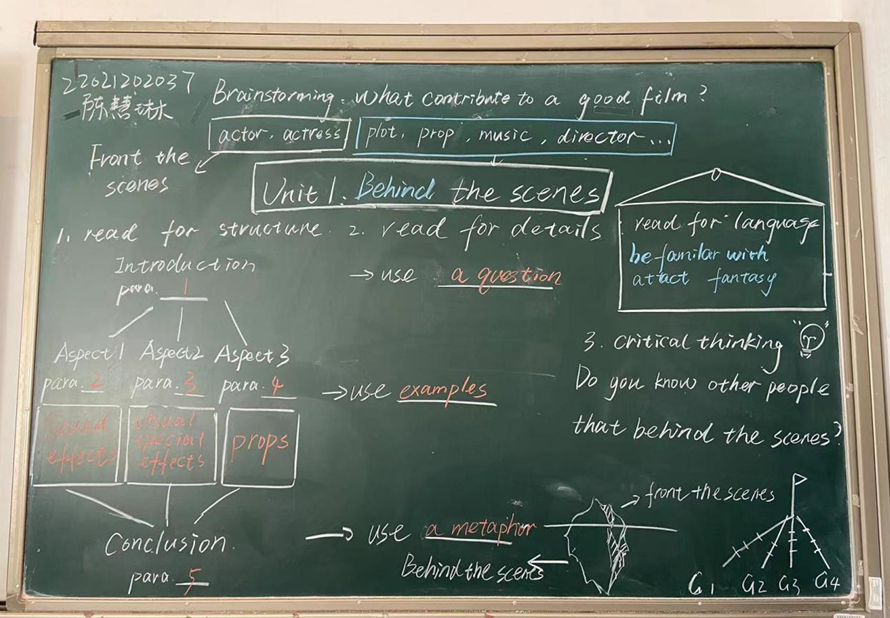 22021202037
陈慧琳
Brainstorming. What contribute to a good film?
actor, actress
plot, prop, music, director...
Front the
scenes
Unit 1. Behind the scenes
1. read for structure.
2. read for details
read for language
be familar with
attact fantasy
Introduction
para. 1
→ use a question
Aspect 1
Aspect 2
Aspect 3
para. 2
para. 3
para. 4
→ use examples
sound
effects
visual
special
effects
props
3. Critical thinking
Do you know other people
that behind the scenes?
Conclusion.
para. 5
→ use a metaphor
front the scenes
Behind the scenes
G1 G2 G3 G4